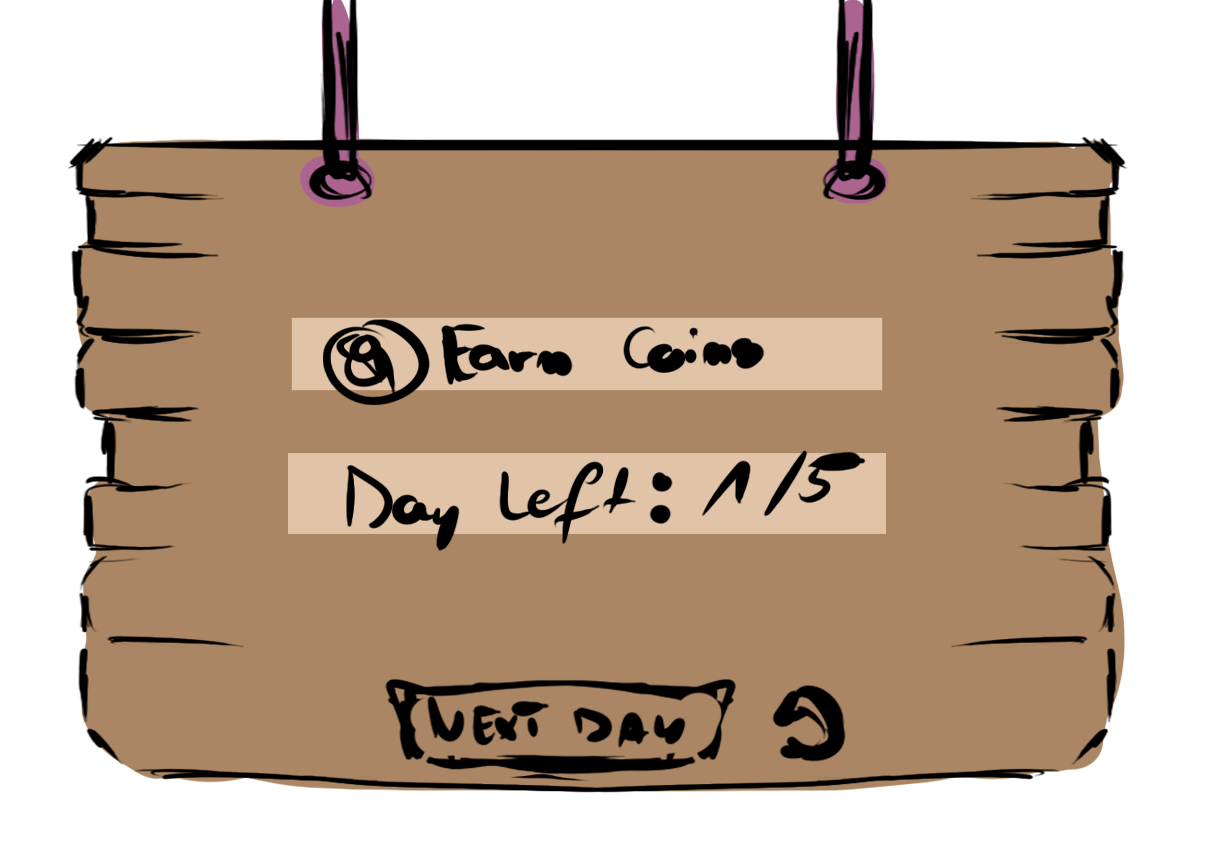 Earn Coins
Day Left: 1/5
NEXT DAY